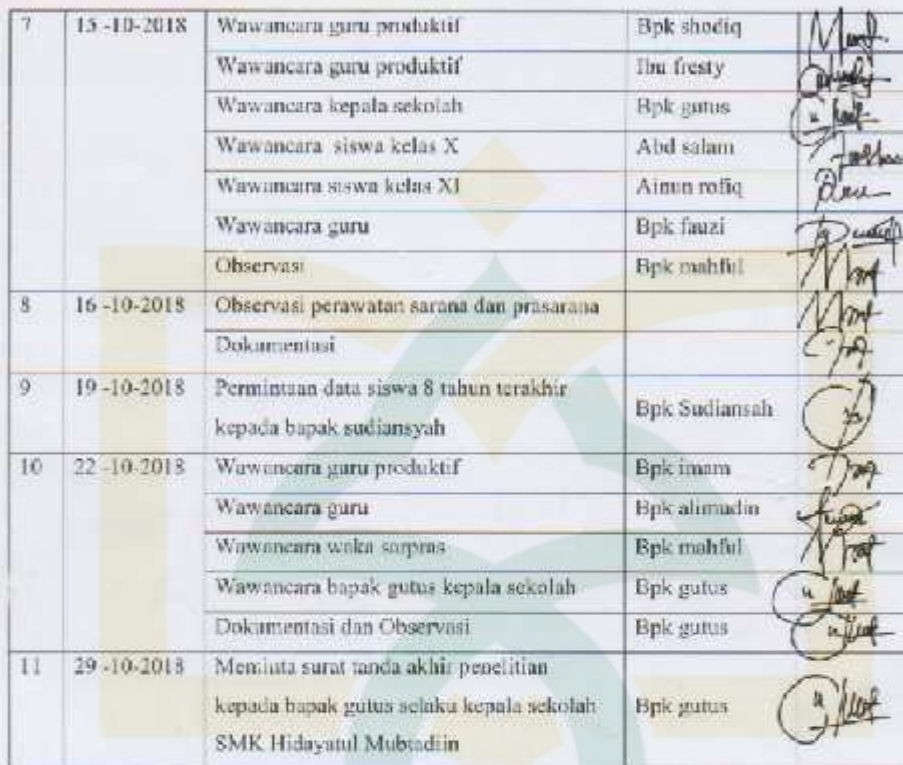 7 15 -10-2018 Wawancara guru produktif Bpk shodiq
Wawancara guru produktif Ibu fresty
Wawancara kepala sekolah Bpk gutus
Wawancara siswa kelas X Abd salam
Wawancara siswa kelas XI Ainun rofiq
Wawancara guru Bpk fauzi
Observasi Bpk mahful
8 16 -10-2018 Observasi perawatan sarana dan prasarana
Dokumentasi
9 19 -10-2018 Permintaan data siswa 8 tahun terakhir
kepada bapak sudiansyah Bpk Sudiansah
10 22 -10-2018 Wawancara guru produktif Bpk imam
Wawancara guru Bpk alimudin
Wawancara waka sarpras Bpk mahful
Wawancara bapak gutus kepala sekolah Bpk gutus
Dokumentasi dan Observasi Bpk gutus
11 29 -10-2018 Meminta surat tanda akhir penelitian
kepada bapak gutus selaku kepala sekolah Bpk gutus
SMK Hidayatul Mubtadiin